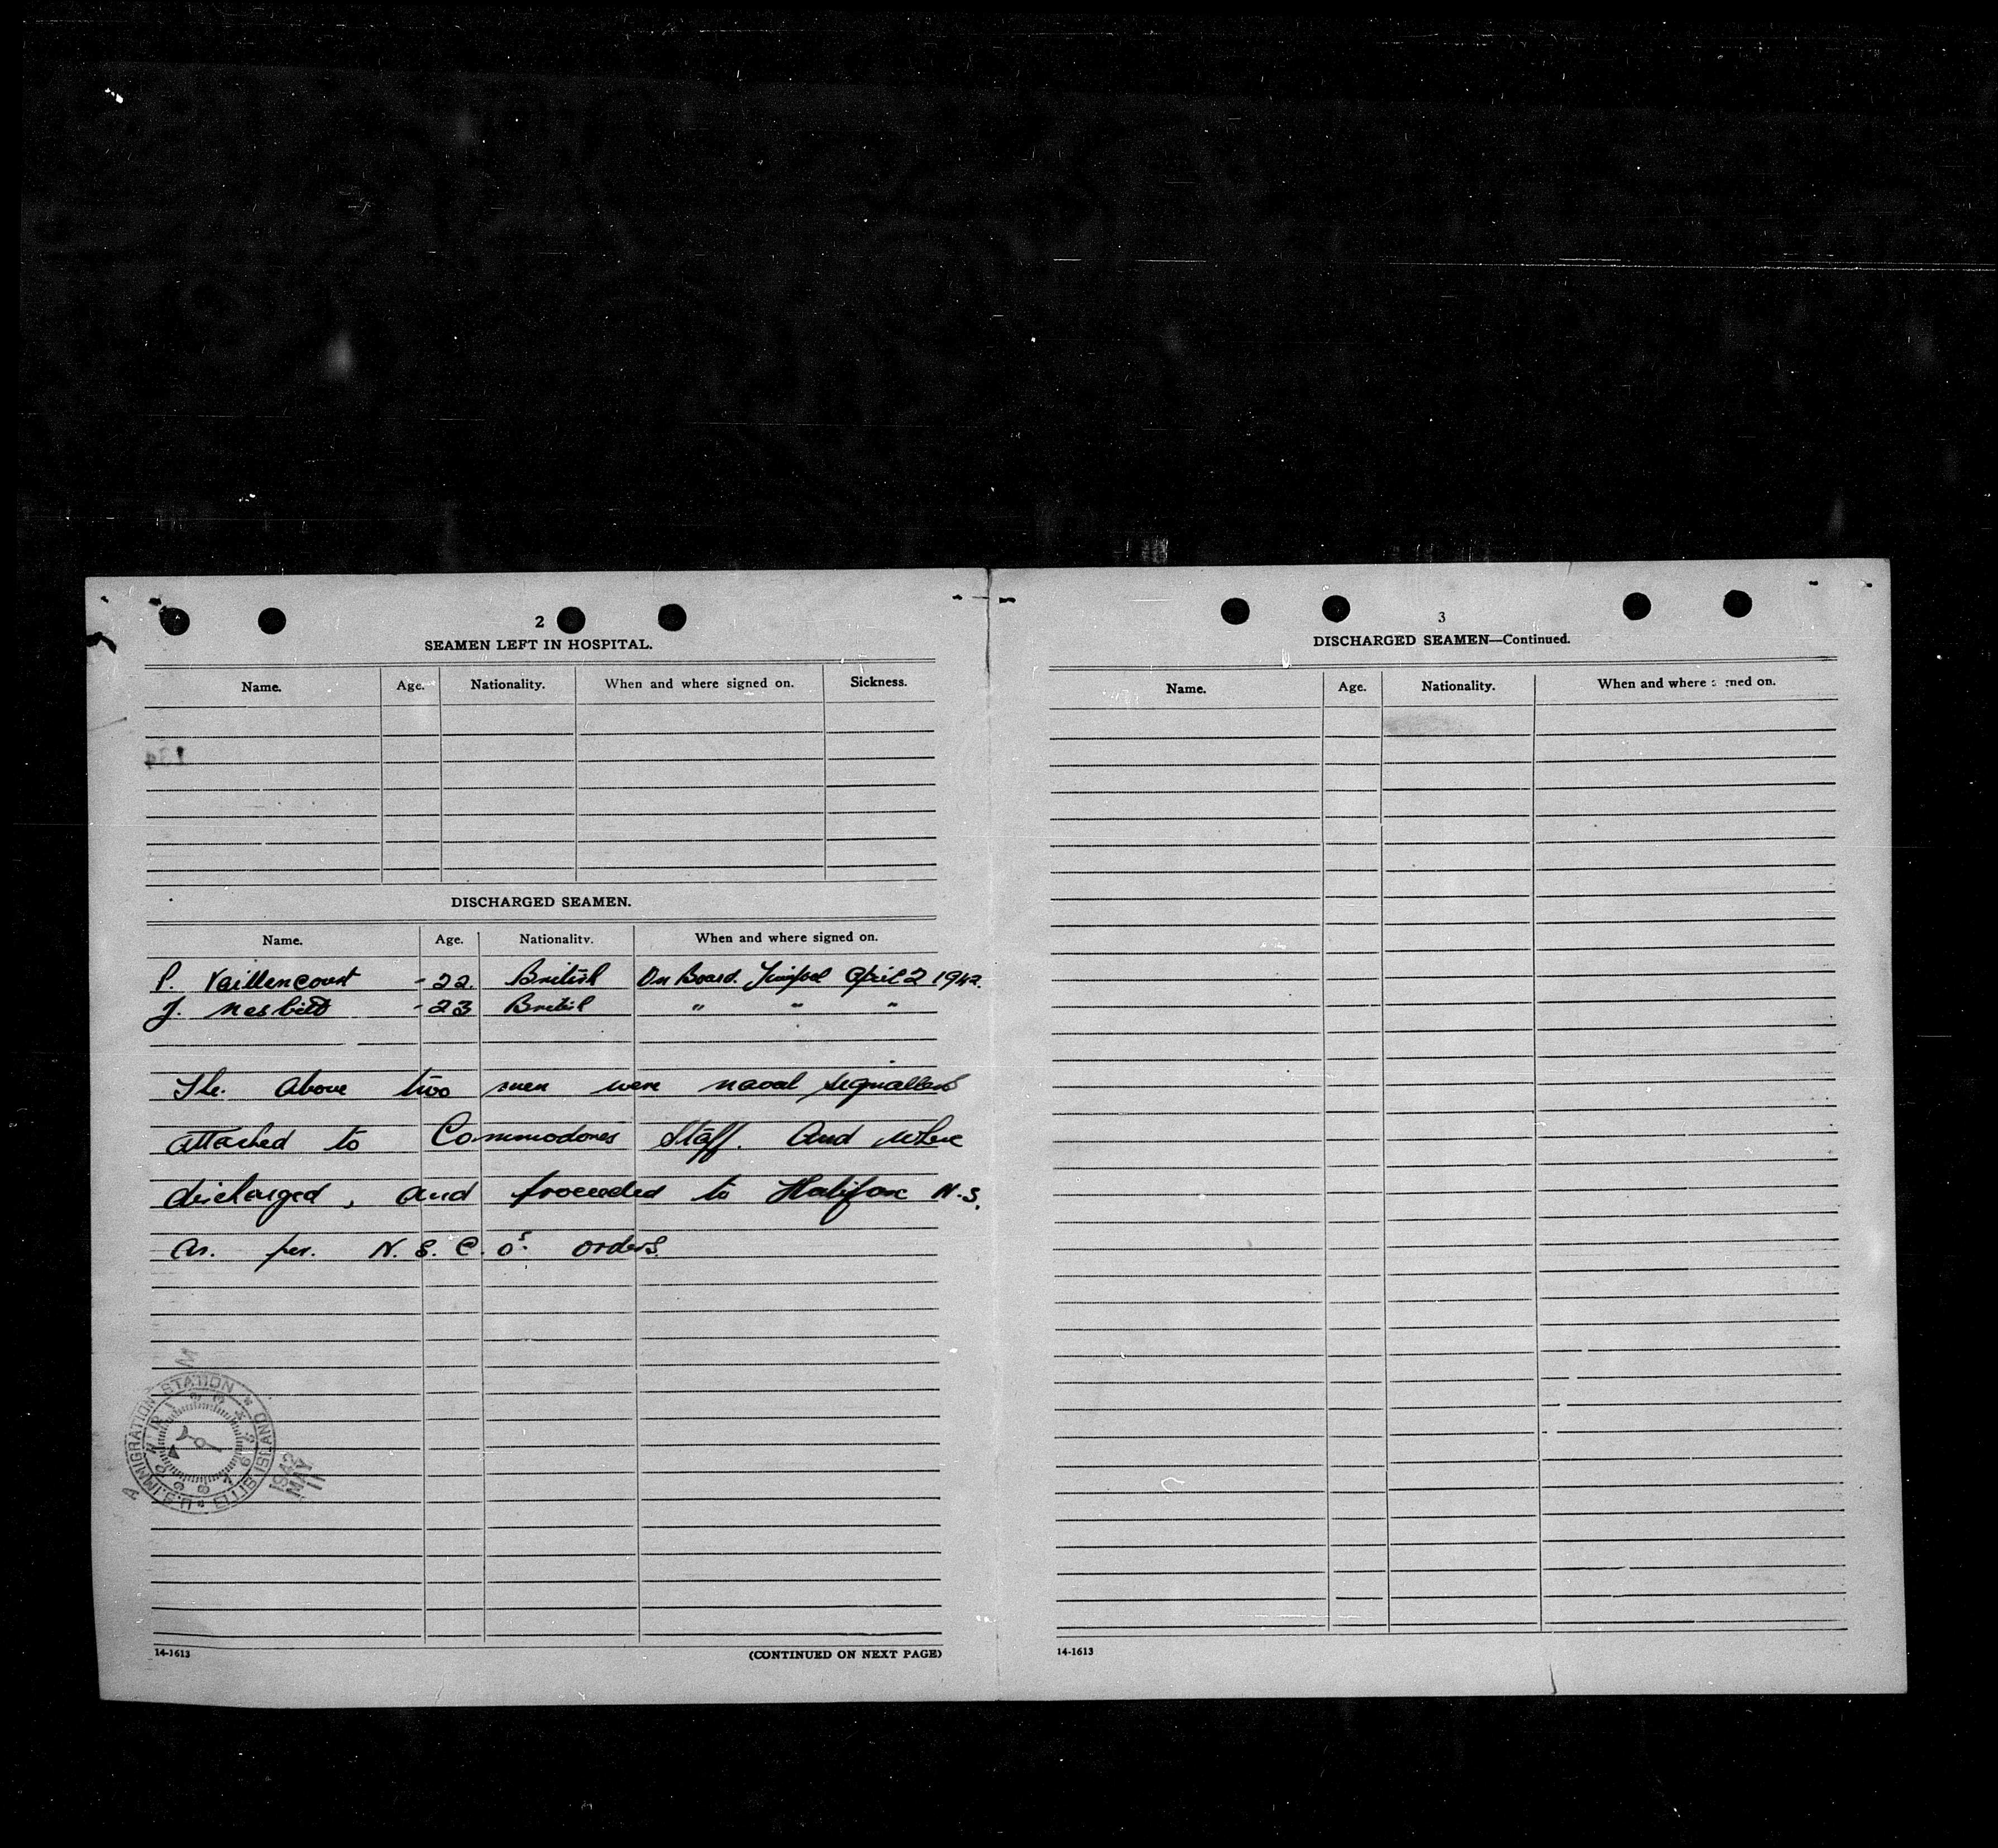 2
SEAMEN LEFT IN HOSPITAL.
Name. Age. Nationality. When and where signed on. Sickness.
DISCHARGED SEAMEN.
Name. Age. Nationality. When and where signed on.
P. Vaillencourt - 22. British On Board. April 2 1942.
J. Nesbitt - 23 British " " "
The. above two men were naval signallers
attached to Commodores Staff. And where
discharged, and proceeded to Halifax N.S.
As. per. N.S.C.O's. orders.
U.S. IMMIGRATION STATION ELLIS ISLAND
1942
MAY
11
A M
14-1613
(CONTINUED ON NEXT PAGE)
3
DISCHARGED SEAMEN—Continued.
Name. Age. Nationality. When and where signed on.
14-1613